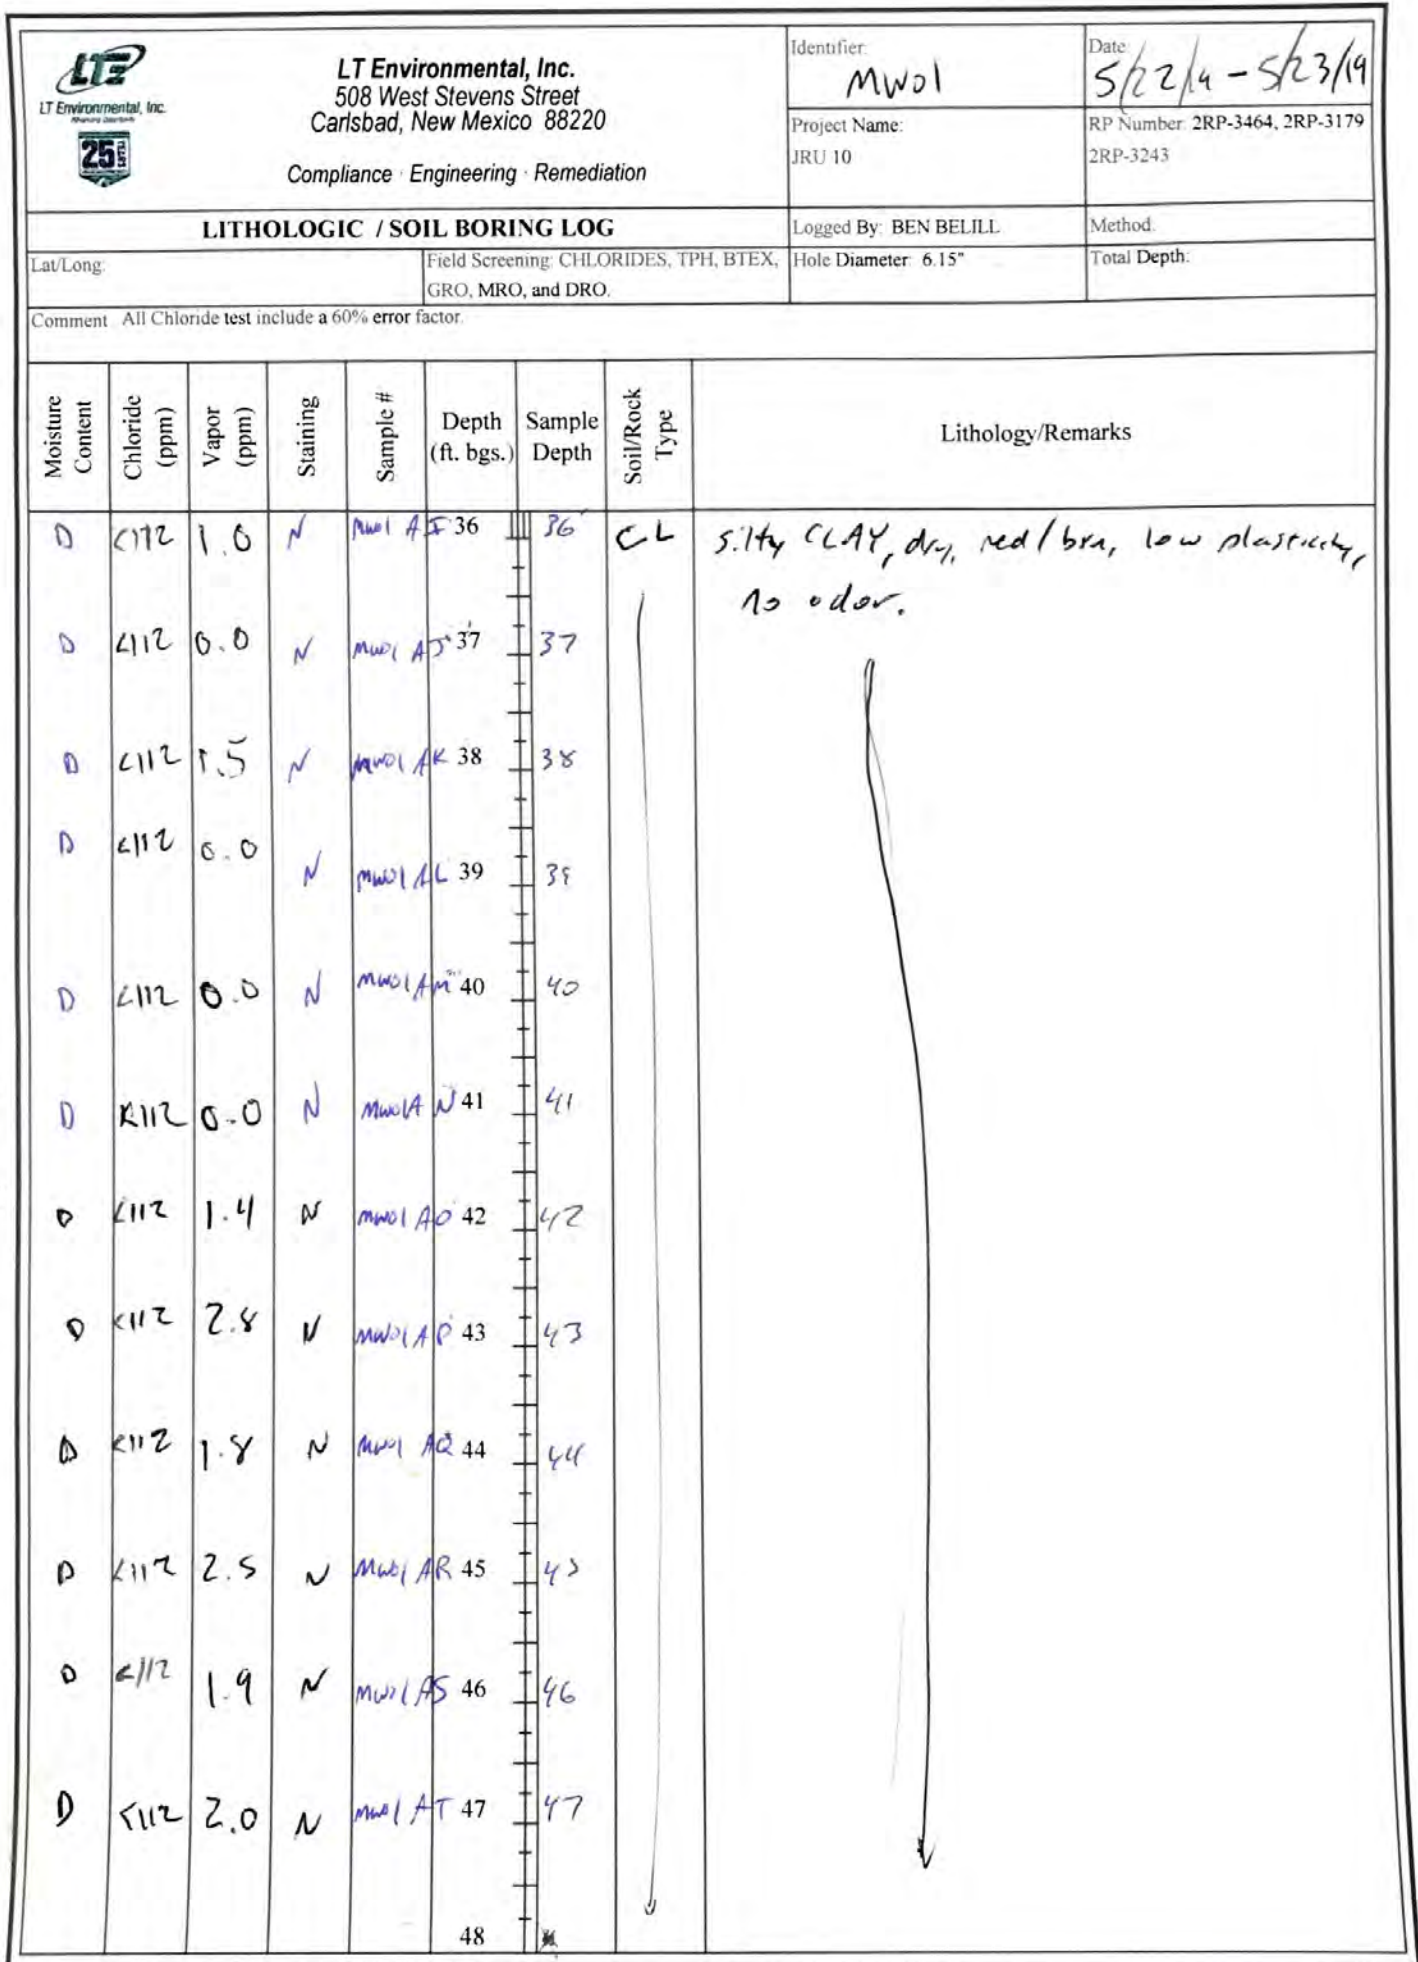 LTE
LT Environmental, Inc.
25 YEARS
LT Environmental, Inc.
508 West Stevens Street
Carlsbad, New Mexico 88220
Compliance · Engineering · Remediation
Identifier:
MW01
Date:
5/22/19 - 5/23/19
Project Name:
JRU 10
RP Number: 2RP-3464, 2RP-3179
2RP-3243
LITHOLOGIC / SOIL BORING LOG
Logged By: BEN BELILL
Method:
Lat/Long:
Field Screening: CHLORIDES, TPH, BTEX,
GRO, MRO, and DRO.
Hole Diameter: 6.15"
Total Depth:
Comment: All Chloride test include a 60% error factor.
Moisture Content
Chloride (ppm)
Vapor (ppm)
Staining
Sample #
Depth (ft. bgs.)
Sample Depth
Soil/Rock Type
Lithology/Remarks
D <172 1.0 N MW01 AI 36 36' CL silty CLAY, dry, red/brn, low plasticity,
no odor.
D <112 0.0 N MW01 AJ 37 37
D <112 1.5 N MW01 AK 38 38
D <112 0.0 N MW01 AL 39 39
D <112 0.0 N MW01 AM 40 40
D <112 0.0 N MW01A N 41 41
D <112 1.4 N MW01 AO 42 42
D <112 2.8 N MW01 AP 43 43
D <112 1.8 N MW01 AQ 44 44
D <112 2.5 N MW01 AR 45 45
D <112 1.9 N MW01 AS 46 46
D <112 2.0 N MW01 AT 47 47
48